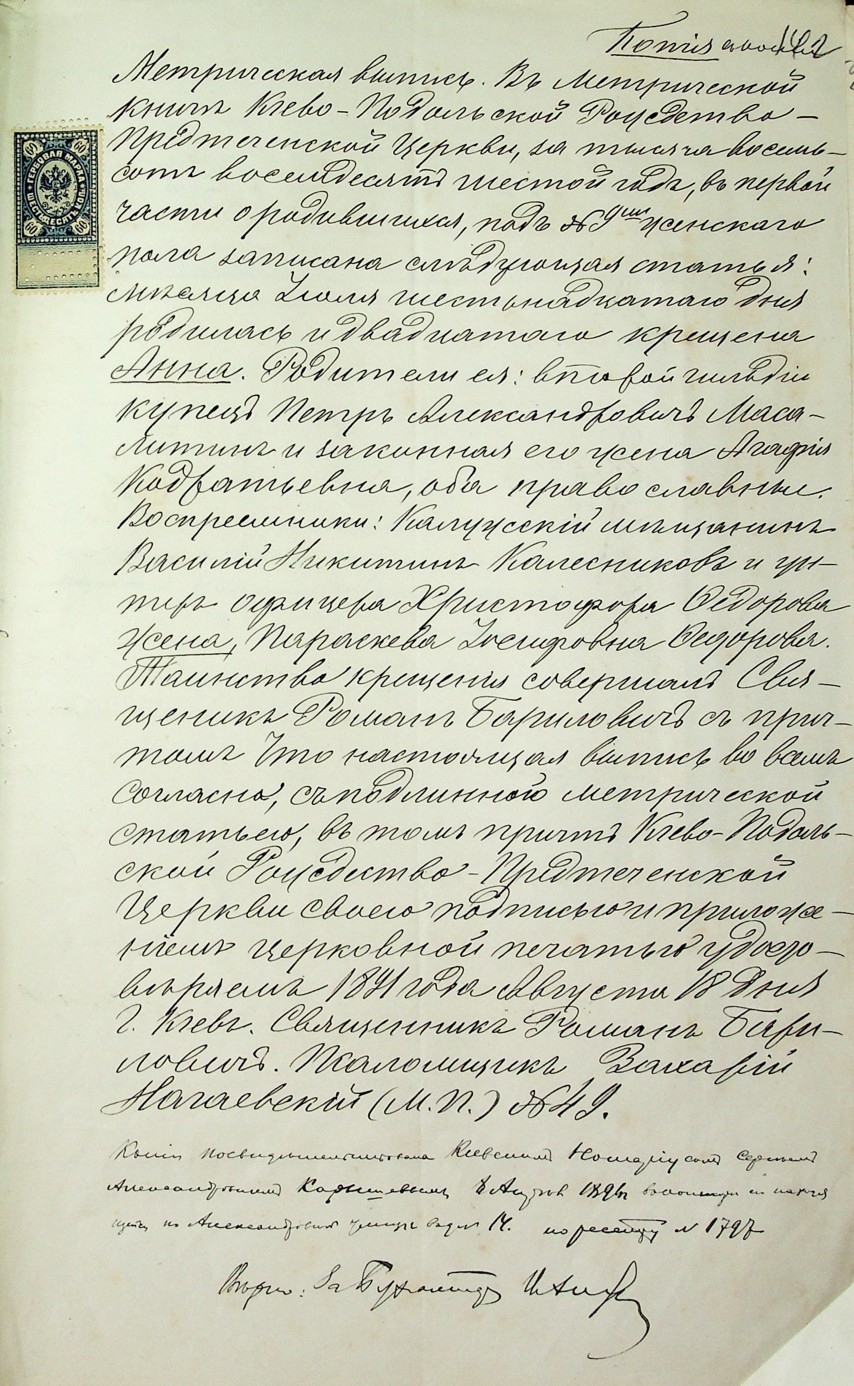 Копія
Метрическая выпись. Въ Метрической
книгѣ Кіево-Подольской Рождество-
Предтеченской Церкви, за тысяча восемь-
сотъ восемдесятъ шестой годъ, въ первой
части о родившихся, подъ № 9ым женскаго
пола записана слѣдующая статья:
мѣсяца Іюля шестьнадцатаго дня
родилась и двадцатаго крещена
Анна. Родители ея: второй гильдіи
купецъ Петръ Александровичъ Маса-
литинъ и законная его жена Агафія
Кодратьевна, оба православные.
Воспреемники: Калужскій мѣщанинъ
Василій Никитинъ Калесниковъ и ун-
теръ офицера Христофора Ѳедорова
жена, Параскева Іосифовна Ѳедорова.
Таинство крещенія совершалъ Свя-
щеникъ Романъ Бариловичъ съ прич-
томъ Что настоящая выпись во всемъ
согласна, съ подлинной метрической
статьею, въ томъ причтъ Кіево-Подоль-
ской Рождество-Предтеченской
Церкви своею подписью и приложе-
ніемъ церковной печатью удосто-
вѣряемъ 1891 года Августа 18 дня
Г. Кіевъ. Священникъ Романъ Бари-
ловичъ. Псаломщикъ Захарій
Нагаевскій (М.П.) № 49.
Копія посвидѣтельствована Кіевскимъ Нотаріусомъ Сергѣемъ
Александровичемъ
по Александровской улицѣ 14. по реестру № 1797
Вѣрно: За Бухгалтера
ГЕРБОВАЯ МАРКА
60